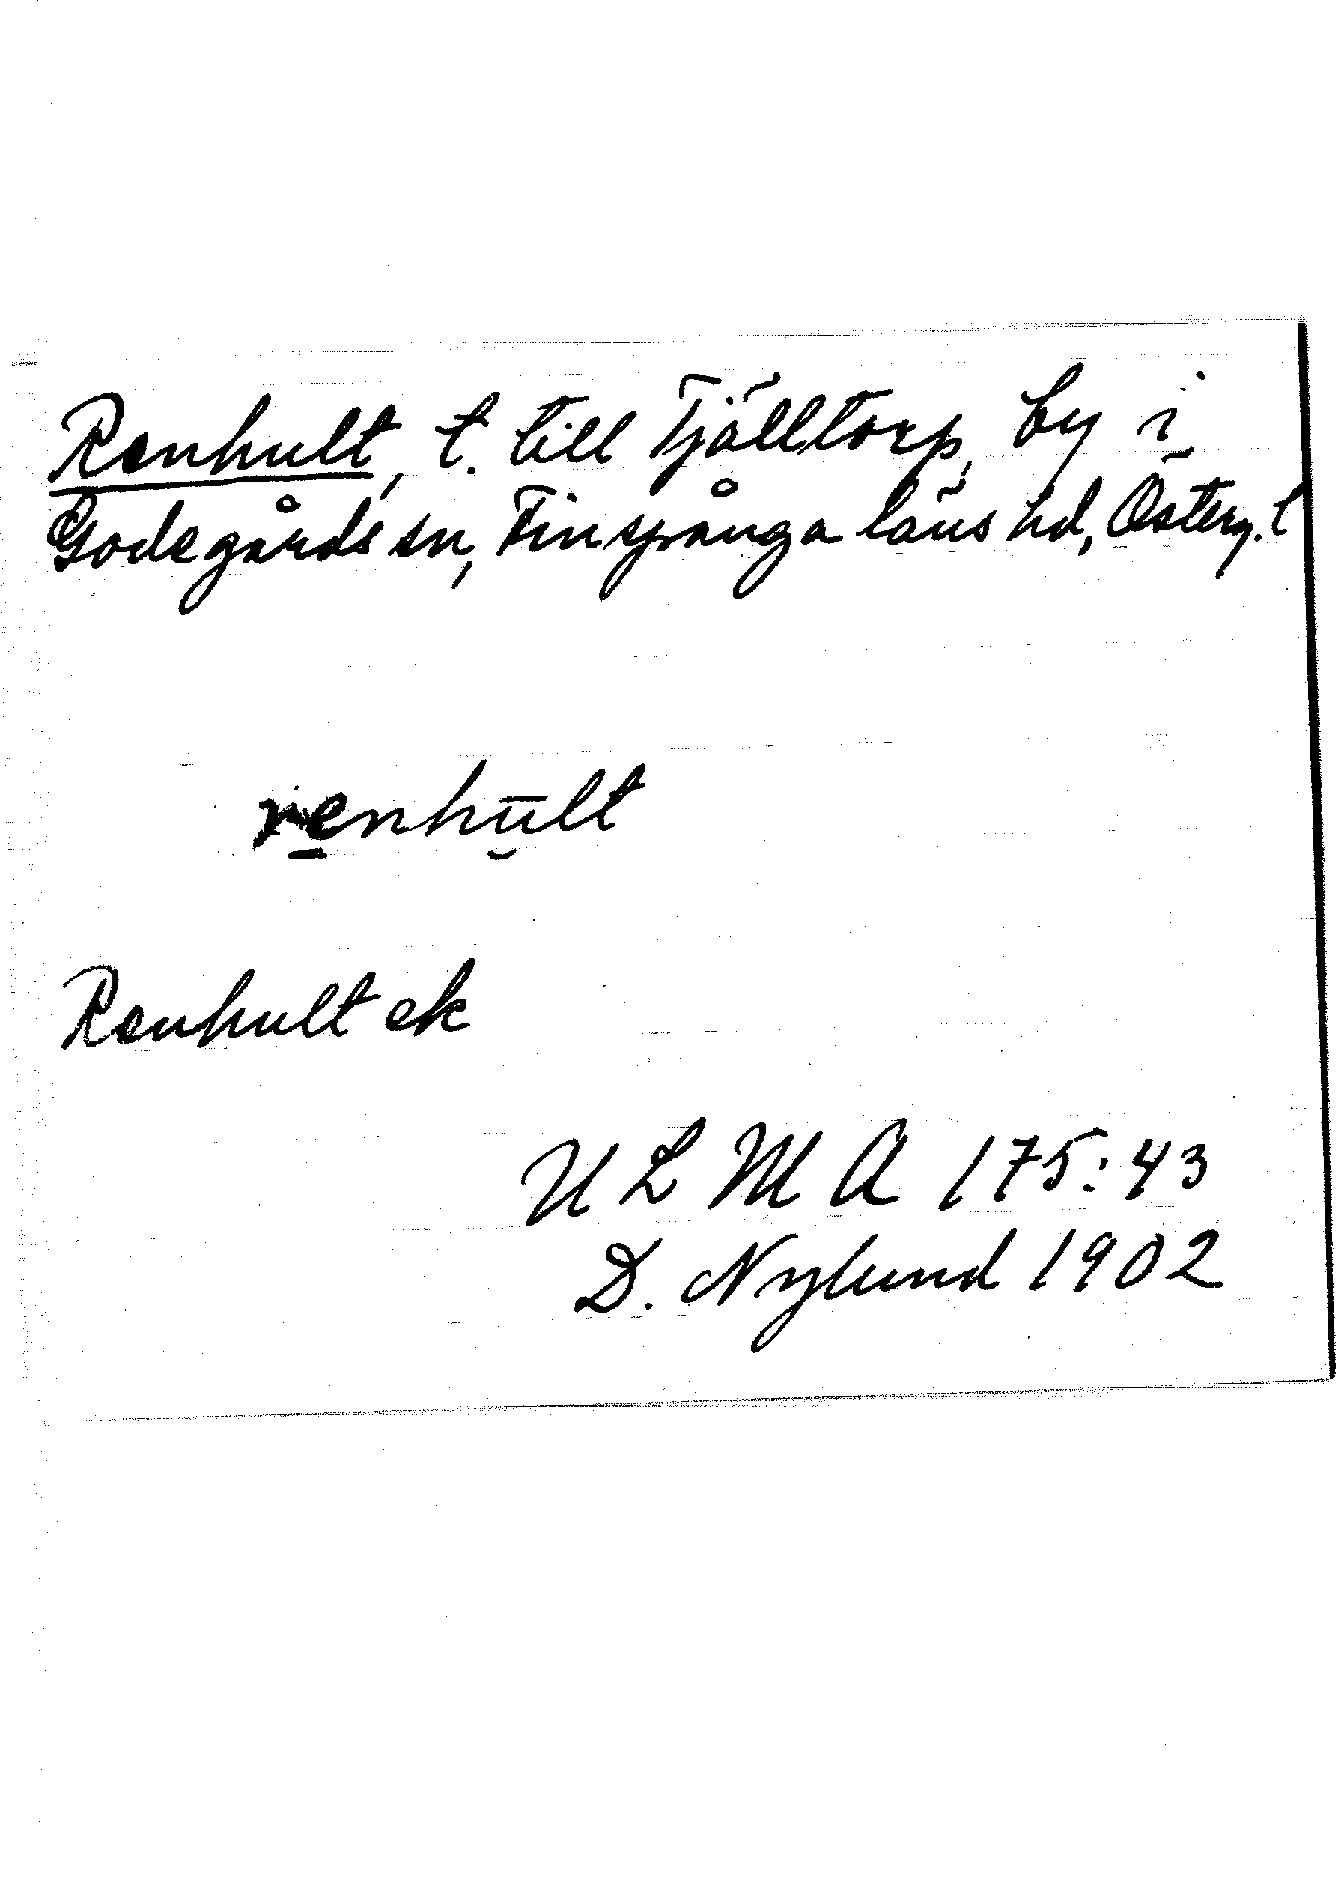 Renhult, t. till Tjälltorp, by i
Godegårds sn, Finspånga läns hd, Österg. l
renhult
Renhult ek
ULMA 175:43
D. Nylund 1902